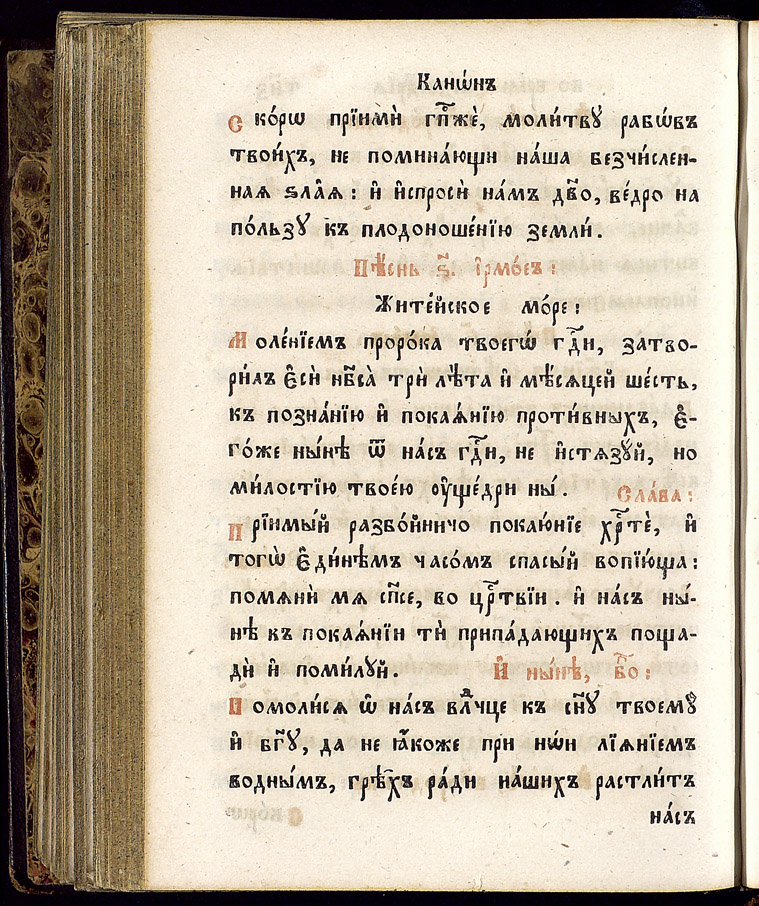 Канѡ́нъ
Ско́рѡ прїимѝ гп҃же́, моли́твꙋ рабѡ́въ
твои́хъ, не помина́ющи на́ша безчи́слен-
наѧ ѕла̑ѧ : и҆ и҆спросѝ на́мъ дв҃о, ве́дро на
по́льзꙋ къ плодоноше́нїю землѝ.
Пѣ́снь ѕ҃. і҆рмо́съ :
Жите́йское мо́ре :
Моле́нїемъ проро́ка твоегѡ̀ гдⷭ҇и, затво-
ри́лъ є҆сѝ нб҃са̀ трѝ лѣ́та и҆ мѣ́сѧцей ше́сть,
къ позна́нїю и҆ покаѧ́нїю проти́вныхъ, є҆-
го́же ны́нѣ ѿ на́съ гдⷭ҇и, не и҆стѧзꙋ́й, но
ми́лостїю твое́ю ᲂу҆ще́дри ны̀.
Сла́ва :
Прїимы́й разбо́йничо покаѧ́нїе хрⷭ҇тѐ, и҆
того̀ є҆ди́нѣмъ часо́мъ спасы́й вопїю́ща :
помѧнѝ мѧ сп҃се, во црⷭ҇твїи. и҆ на́съ ны́-
нѣ къ покаѧ́нїи тѝ припа́дающихъ поща-
дѝ и҆ поми́лꙋй.
И҆ ны́нѣ, бг҃о :
Помоли́сѧ ѡ҆ на́съ влⷣчце къ сн҃ꙋ твоемꙋ̀
и҆ бг҃ꙋ, да не ꙗ҆́коже при нѡ́и лїѧ́нїемъ
водны́мъ, грѣ̑хъ ра́ди на́шихъ растли́тъ
на́съ